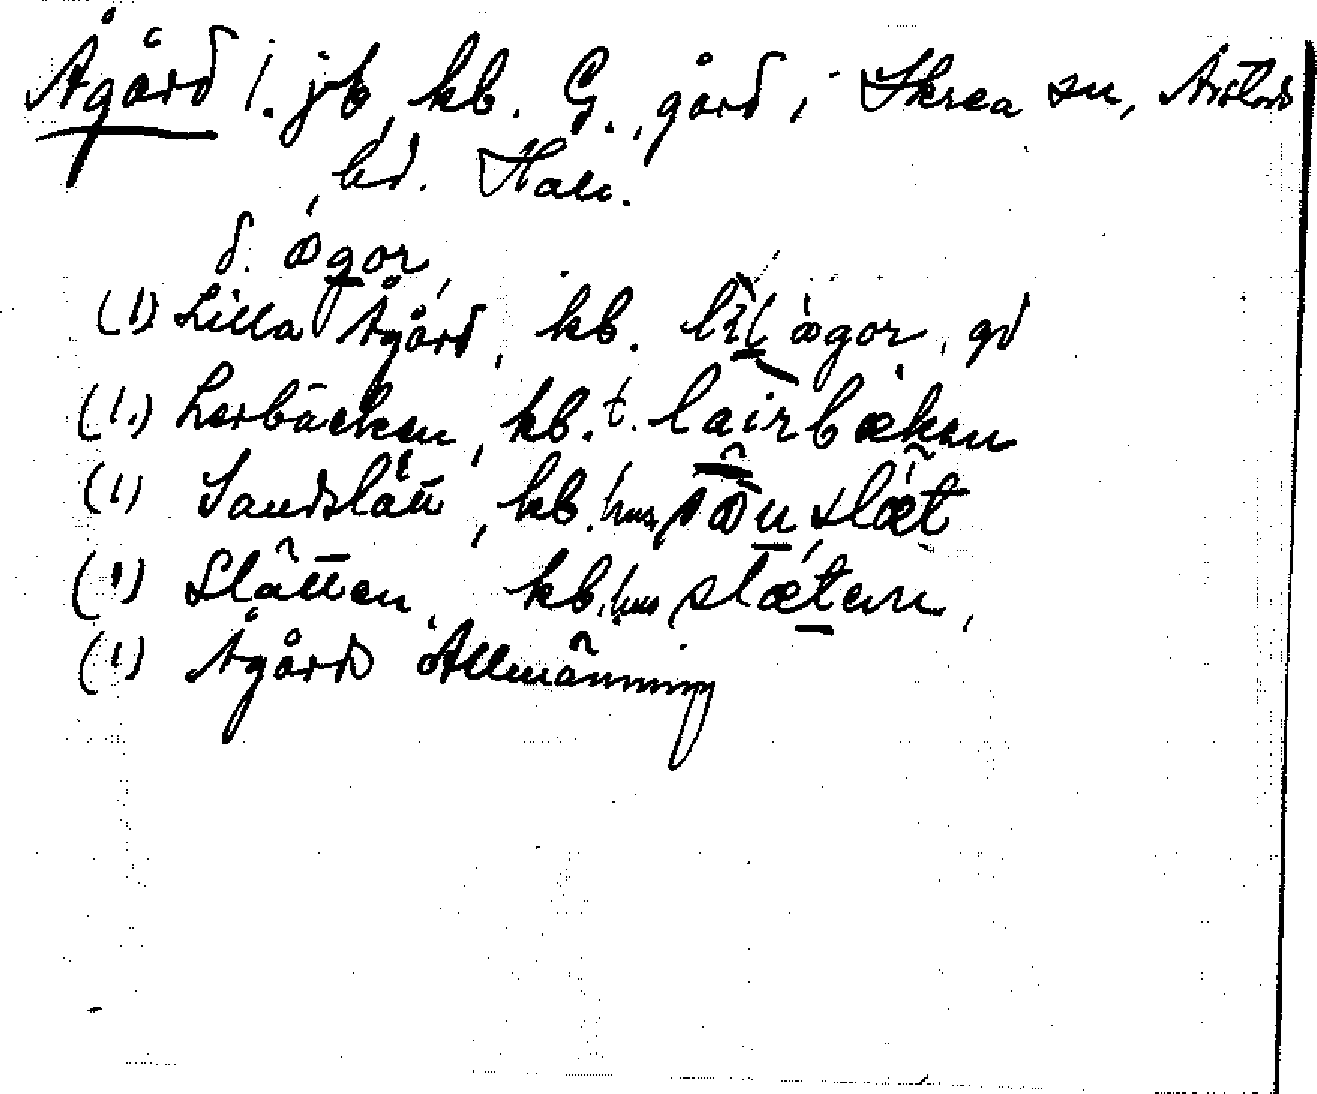 Ågård 1. jb, kb. G., gård i Skrea sn, Årstads
hd. Hall.
d. ågor
(1) Lilla Ågård, kb. lil ågor, gd
(1.) Lerbäcken, kb. t. lairbæken
(1) Sandslätt, kb. hus, slæt
(1) Slätten, kb. hus slæten,
(1) Ågård Allmänning